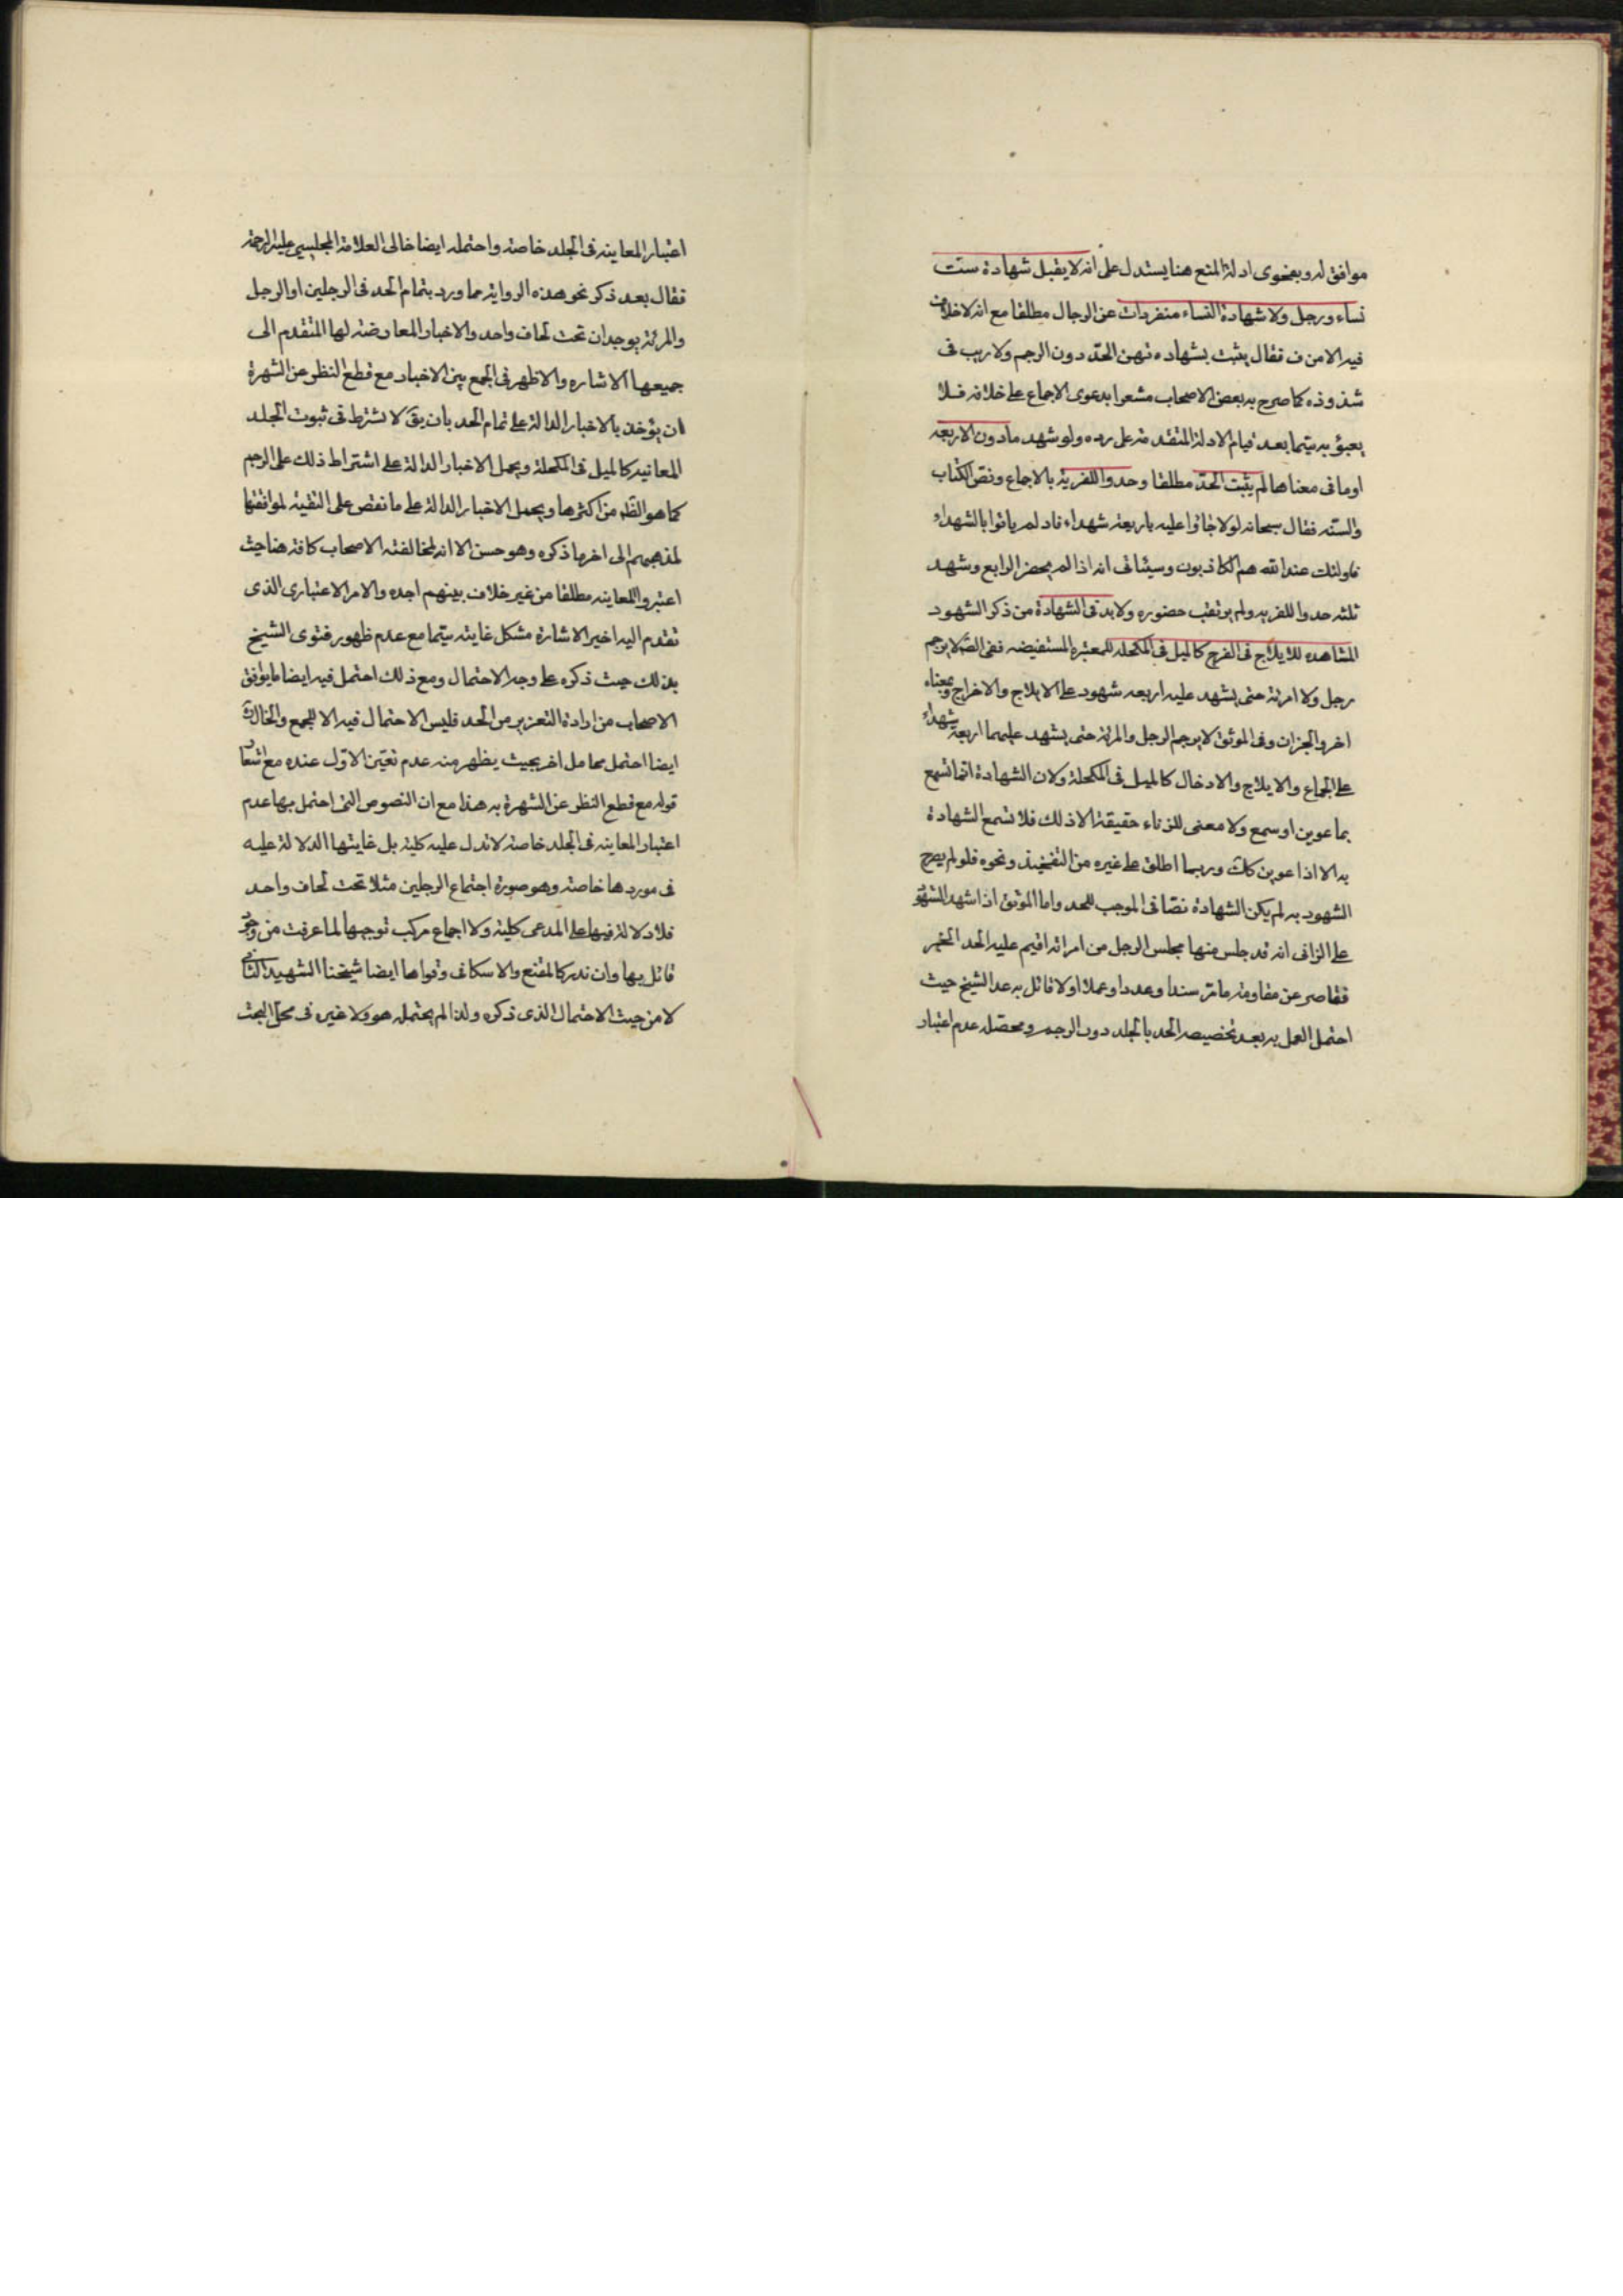 موافق له وبفحوى ادلة المنع هنا يستدل على انه لا يقبل شهادة ست
نساء ورجل ولا شهادة النساء منفردات عن الرجال مطلقا مع انه لا خلاف
فيه الا من ف فقال يثبت بشهادتهن الحد دون الرجم ولا ريب فى
شذوذه كما صرح به بعض الاصحاب مشعرا بدعوى الاجماع على خلافه فلا
يعبؤ به سيما بعد قيام الادلة المتقدمة على رده ولو شهد مادون الاربعه
او ما فى معناها لم يثبت الحد مطلقا وحدوا للفرية بالاجماع ونص الكتاب
والسنه فقال سبحانه لولا جاؤا عليه باربعة شهداء فاذ لم ياتوا بالشهداء
فاولئك عند الله هم الكاذبون وسيئاتى انه اذا لم يحضر الرابع وشهد
ثلثه حدوا للفريه ولم يرتقب حضوره ولا بد فى الشهادة من ذكر الشهود
المشاهده للايلاج فى الفرج كالميل فى المكحله للمعتبره المستفيضه ففى الصحيح لا يرجم
رجل ولا امرئة حتى يشهد عليه اربعه شهود على الايلاج والاخراج وبمعناه
اخر والخبران وفى الموثق لا يرجم الرجل والمرئة حتى يشهد عليهما اربعة شهداء
على الجماع والايلاج والادخال كالميل فى المكحلة ولان الشهادة انما تسمع
بما عوين او سمع ولا معنى للزناء حقيقة الا ذلك فلا تسمع الشهادة
به الا اذا عوين كك وربما اطلق على غيره من التفخيذ ونحوه فلو لم يصرح
الشهود به لم يكن الشهادة نصا فى الموجب للحد واما الموثق اذا شهد الشهود
على الزانى انه قد جلس منها مجلس الرجل من امراته اقيم عليه الحد الخبر
فقاصر عن مقاومة ما مر سندا وعددا وعملا اولا قائل به عدا الشيخ حيث
احتمل العمل به بعد تخصيصه الحد بالجلد دون الرجم ومحصله عدم اعتبار
اعتبار المعاينه فى الجلد خاصة واحتمله ايضا خالى العلامة المجلسي عليه الرحمة
فقال بعد ذكر نحو هذه الرواية مما ورد بتمام الحد فى الرجلين او الرجل
والمرئة يوجدان تحت لحاف واحد والاخبار المعارضة لها المتقدم الى
جميعها الاشاره والاظهر فى الجمع بين الاخبار مع قطع النظر عن الشهرة
ان يؤخذ بالاخبار الدالة على تمام الحد بان يق لا نشترط فى ثبوت الجلد
المعانيه كالميل فى المكحلة ويحمل الاخبار الدالة على اشتراط ذلك على الرجم
كما هو الظ من اكثرها ويحمل الاخبار الدالة على ما نقص على التقية لموافقتها
لمذهبهم الى اخر ما ذكره وهو حسن الا انه لمخالفته الاصحاب كافة هنا حيث
اعتبروا المعاينه مطلقا من غير خلاف بينهم اجده والامر الاعتبارى الذى
تقدم اليه اخيرا الاشارة مشكل غايته سيما مع عدم ظهور فتوى الشيخ
بذلك حيث ذكره على وجه الاحتمال ومع ذلك احتمل فيه ايضا ما يوافق
الاصحاب من ارادة التعزير من الحد فليس الاحتمال فيه الا للجمع والخال
ايضا احتمل محامل اخر بحيث يظهر منه عدم تعين الاول عنده مع اشعار
قوله مع قطع النظر عن الشهرة به هذا مع ان النصوص التى احتمل بها عدم
اعتبار المعاينه فى الجلد خاصة لا تدل عليه كلية بل غايتها الدلالة عليه
فى موردها خاصة وهو صورة اجتماع الرجلين مثلا تحت لحاف واحد
فلا دلالة فيها على المدعى كلية ولا اجماع مركب توجبها لما عرفت من وجود
قائل بها وان ندر كالمقنع والاسكافى وقواها ايضا شيخنا الشهيد الثانى
لا من حيث الاحتمال الذى ذكره ولذا لم يحتمله هو ولا غيره فى محل البحث